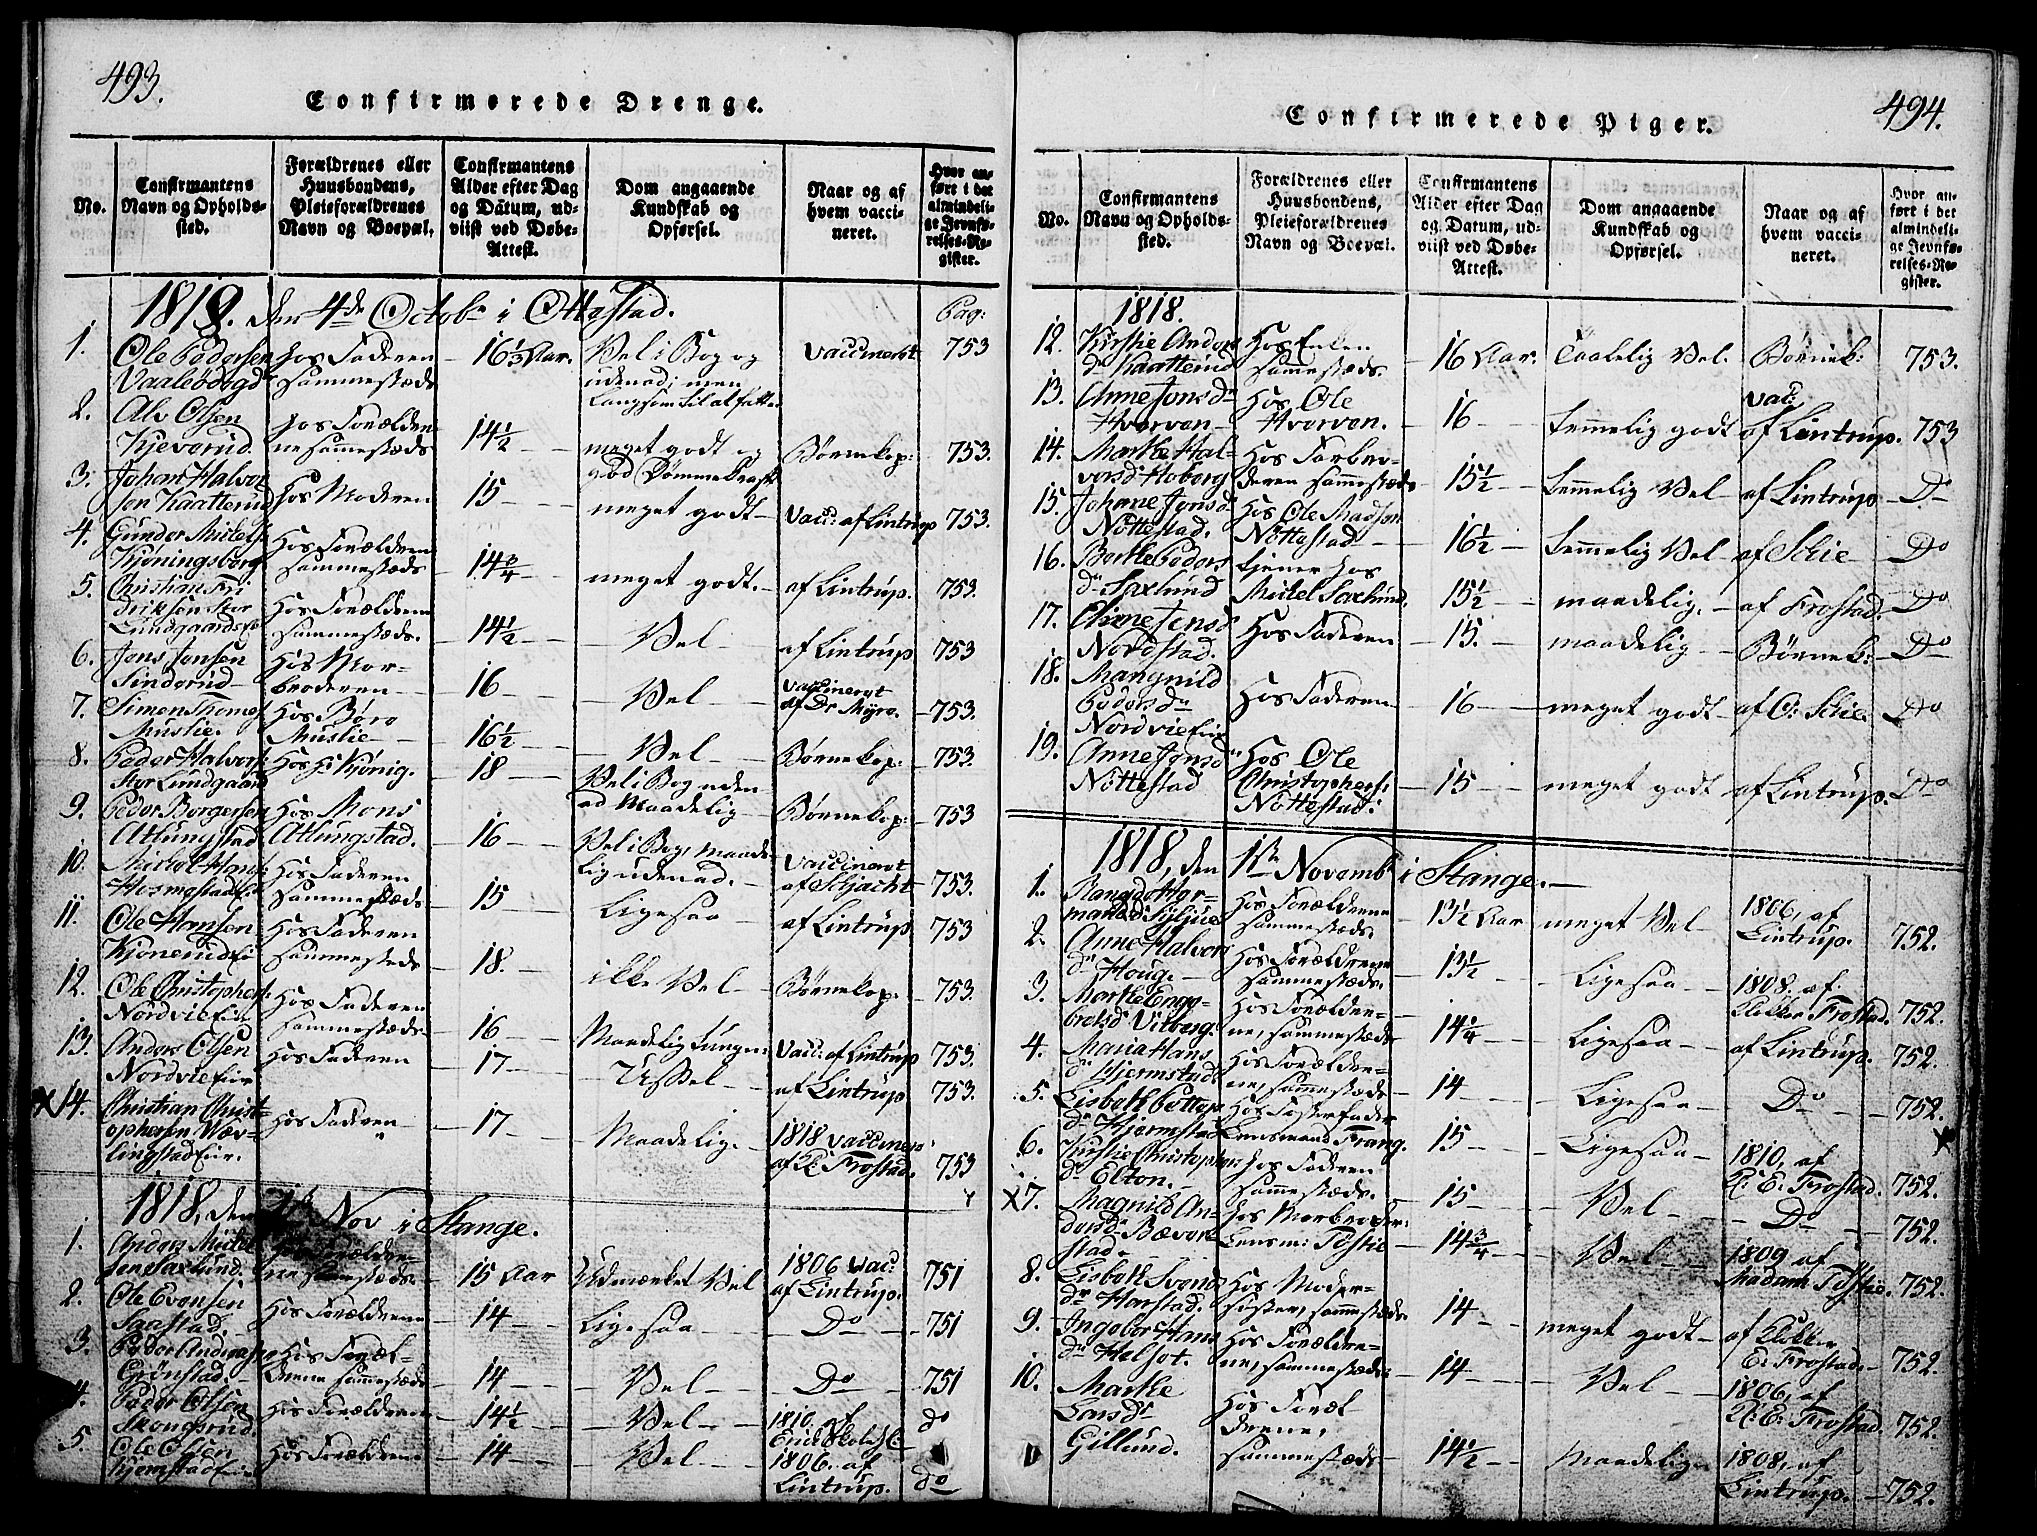 493.
Confirmerede Drenge.
No.
Confirmantens
Navn og Opholds-
sted.
Forældrenes eller
Huusbondens,
Pleieforældrenes
Navn og Boepæl.
Confirmantens
Alder efter Dag
og Datum, ud-
viist ved Døbe-
Attest.
Dom angaaende
Kundskab og
Opførsel.
Naar og af
hvem vacci-
neret.
Hvor an-
ført i det
almindeli-
ge Jevnfø-
relses-Re-
gister.
1818. den 4de Octobr i Ottestad.
Pag:
1. Ole Pedersen Hos Faderen 16⅓ Aar. Vel i Bog og vaccineret 753
sammestæds udenad; men
Langsom til at fatte
2. Alv Olsen Hos Forælder-
Kjeverud ne sammestæds 14½ meget godt og Børnekop: 753.
3. Johan Halvor
sen Kaatterud Hos Moderen 15 meget godt Vacc: af Lintrup 753.
4. Gunder Mickels
Kjøningsberg Hos Forældren
sammestæds 14¾ meget godt. af Lintrup. 753.
5. Christian Fri
driksen Stor
Lundgaardseie Hos Forældrene
sammestæds. 14½ Vel af Lintrup 753
6. Jens Jensen
Sinderud Hos Mor-
broderen 16 Vel vaccineret
af Dr Myre. 753.
7. Simen Thomes
Muslie. Hos Børe
Muslie 16½ Vel Børnekop: 753.
8. Peder Halvors
Stor Lundgaard Hos H: Kjønig. 18 Vel i Bog uden-
ad Maadelig Børnekop: 753
9. Peder Borgersen
Atlungstad Hos Mons
Atlungstad. 16 Vel i Bog, maade-
lig udenad. vaccineret
af Schjacht 753.
10. Mickel Hans
Hosmestadeie Hos Faderen
sammestæds 15 Ligesaa af Lintrup 753
11. Ole Hansen
Kjonerudeie Hos Faderen
sammesteds 18. ikke Vel Børnekop: 753.
12. Ole Christophers:
Nordvieeie Hos Faderen
sammestæds 16 Maadelig Vacc: af Lintrup 753.
13. Anders Olsen
Nordvieeie Hos Faderen 17 Ussel af Lintrup 753.
x14. Christian Christ-
ophersen Wæv-
lingstadeie. Hos Faderen 17 Maadelig. 1818 vaccineret
af Kl: Frostad. 753
1818, den Nov i Stange.
1. Anders Mickel
sen Saxlund ne sammestæds. 15 Aar Udmærket Vel 1806 vac:
af Lintrup. 751
2. Ole Evensen
Saastad Hos Forældrene 14 Ligesaa Do 751
3. Peder Andreasen
Grønstad Hos Foræl-
drene sammestæds 14 Vel Do 751
4. Peder Olsen
Skongsrud. Hos Forældrene 14½ Vel 1810. af
Erick do
5. Ole Olsen
Kjemstadeie Hos Forældrene 14 Vel 1806. af
Lintrup. Do
494.
Confirmerede Piger.
No.
Confirmantens
Navn og Opholds-
sted.
Forældrenes eller
Huusbondens,
Pleieforældrenes
Navn og Boepæl.
Confirmantens
Alder efter Dag
og Datum, ud-
viist ved Døbe-
Attest.
Dom angaaende
Kundskab og
Opførsel.
Naar og af
hvem vacci-
neret.
Hvor an-
ført i det
almindeli-
ge Jevnfø-
relses-Re-
gister.
1818.
12. Kirstie Anders
dr Kaatterud Hos Enken
sammestæds. 16 Aar. Taalelig Vel. Børnek: 753.
13. Anne Jensdr
Hverven Hos Ole
Hverven. 16 temmelig godt vac:
af Lintrup. 753
14. Marthe Hal-
vorsdr Hoberg Hos Farbro-
deren sammestæds 15½ temmelig Vel af Lintrup Do
15. Johanne Jensdr
Nöttestad. Hos Ole Madsen
Nöttestad 16½ temmelig Vel af Schie Do
16. Berthe Peders
dr Saxlund tjener hos
Mickel Saxlund. 15½ maadelig. af Frostad. Do
17. Jensdr
Nordstad. Hos Faderen 15. maadelig Børnek: Do
18. Mangnild
Pedersdr
Nordvieeie Hos Faderen 16 meget godt af C: Schie. Do
19. Anne Jensdr
Nöttestad Hos Ole
Christophers:
Nöttestad: 15 meget godt af Lintrup. Do
1818, den 1ste Novembr i Stange.
1. Hos Forældrene
sammestæds. 13½ Aar meget Vel 1806, af
Lintrup. 752.
2. Anne Halvors
dr Houg. Hos Forældrene
sammestæds. 13½ Ligesaa 1808. af
Klokker Frostad. 752.
3. Marthe Enge-
bretsdr Vitberg. Hos Forældre-
ne, sammestæds 14¼ Ligesaa af Lintrup. 752.
4. Maria Hans
dr Hjermstad Hos Forældre-
ne, sammestæds 14 Ligesaa Do 752.
5. Lisbeth
dr Hjermstad Hos Fosterfader
Lensmand Frang. 15 Ligesaa 1810, af
Kl: E: Frostad. 752.
6. Kirstie Christophers
dr Elton. Hos Faderen
sammestæds. 15 Vel Do 752.
x7. Magnild An-
dersdr Bæver-
stad Hos Morbroder:
Lensm: Tostie 14¾ Vel 1809 af
Madam Tostie. 752.
8. Lisbeth Svends
dr Harstad. Hos Moder-
søster, sammestæds 14 meget godt af Klokker
E: Frostad 752.
9. Ingebor Hans
dr Helset. Hos Forældre-
ne, sammestæds 14 Vel 1806, af
Kl: E: Frostad. 752.
10. Marthe
Larsdr
Gillund. Hos Foræl
drene,
sammestæds 14½ Maadelig 1808, af
Lintrup. 752.